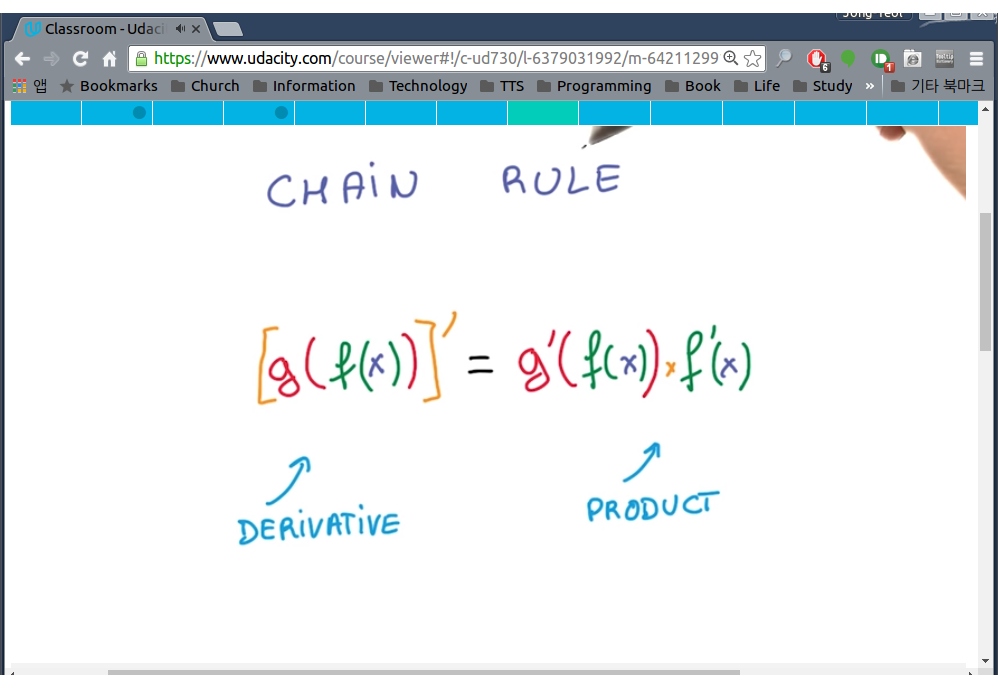 Jong Yeol
Classroom - Udaci
https://www.udacity.com/course/viewer#!/c-ud730/l-6379031992/m-64211299
6
1
앱 Bookmarks Church Information Technology TTS Programming Book Life Study » 기타 북마크
CHAiN RULE
[g(f(x))]' = g'(f(x))×f'(x)
DERiVATiVE
PRODUCT